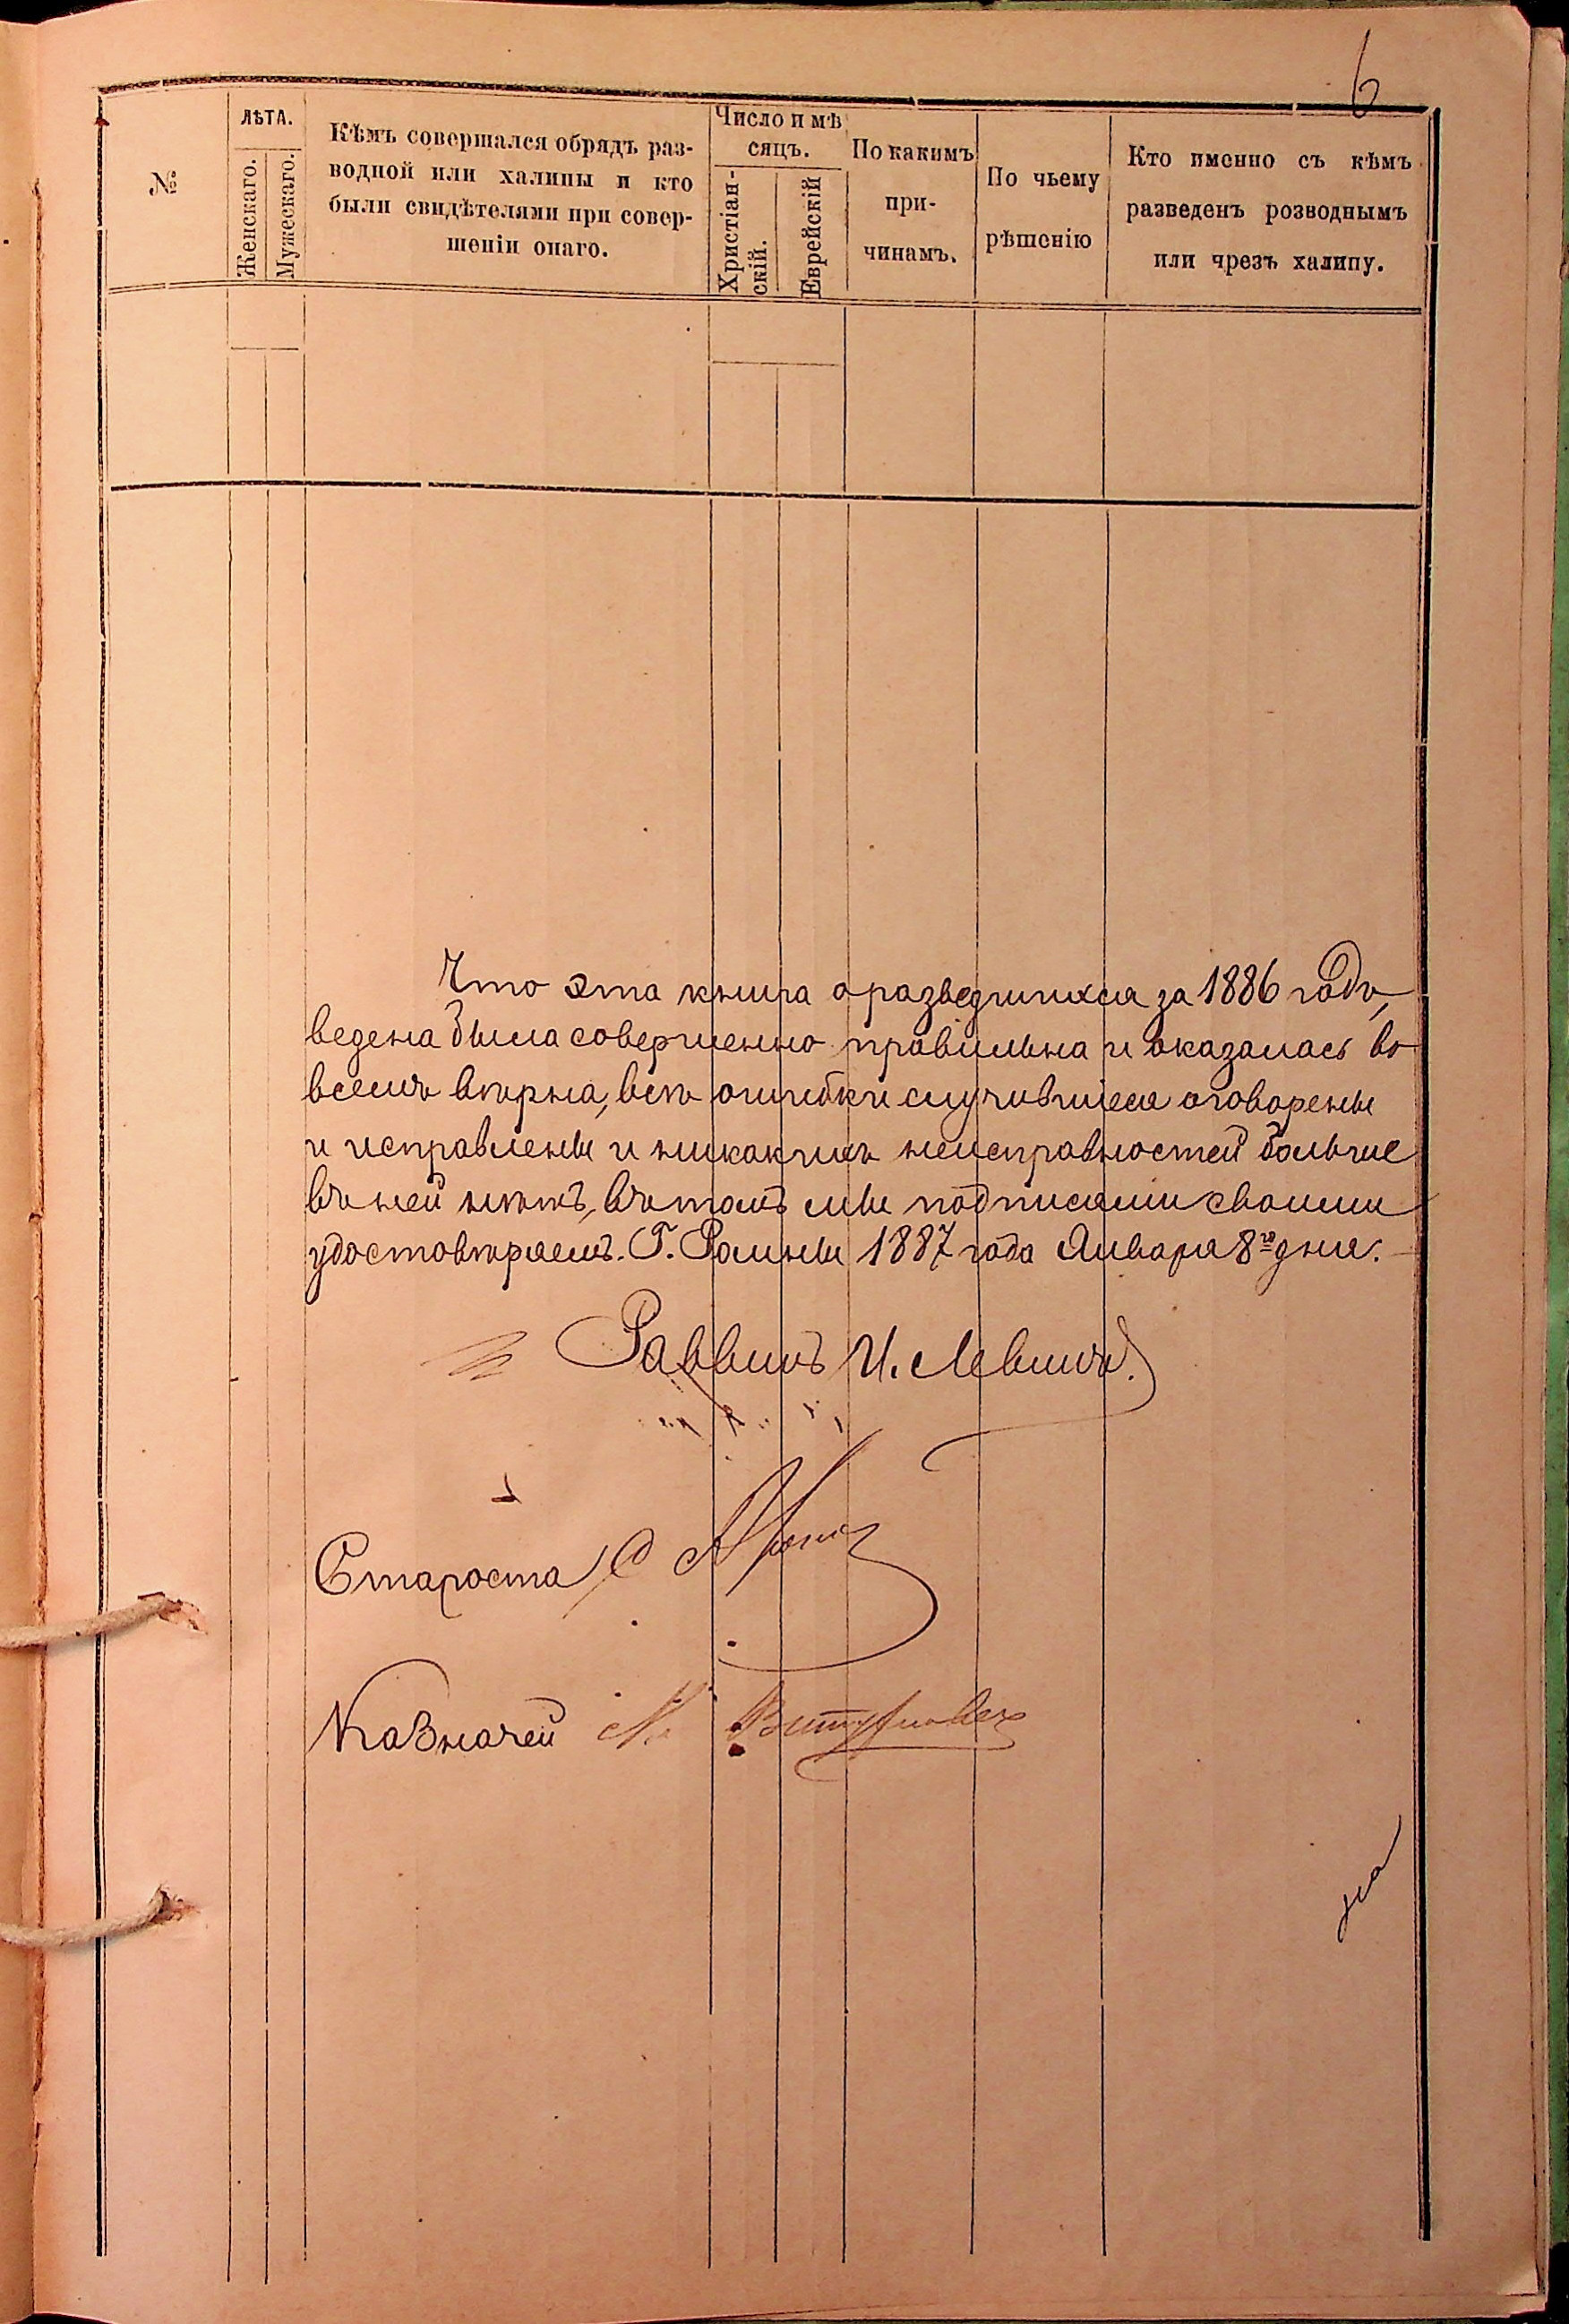 6
№
ЛѢТА.
Женскаго.
Мужескаго.
Кѣмъ совершался обрядъ раз-
водной или халицы и кто
были свидѣтелями при совер-
шеніи онаго.
Число и мѣ
сяцъ.
Христіан-
скій.
Еврейскій
По какимъ
при-
чинамъ.
По чьему
рѣшенію
Кто именно съ кѣмъ
разведенъ розводнымъ
или чрезъ халицу.
Что эта книга о разведшихся за 1886 годъ,
ведена была совершенно правильна и оказалась во
всемъ вѣрна, всѣ ошибки случившіеся оговорены
и исправлены и никакихъ неисправностей больше
въ ней нѣтъ, въ томъ мы подписями своими
удостовѣряемъ. Г. Ромны 1887 года Января 8го дня.
Раввинъ И. Левинъ.
Староста
Казначей М.
на